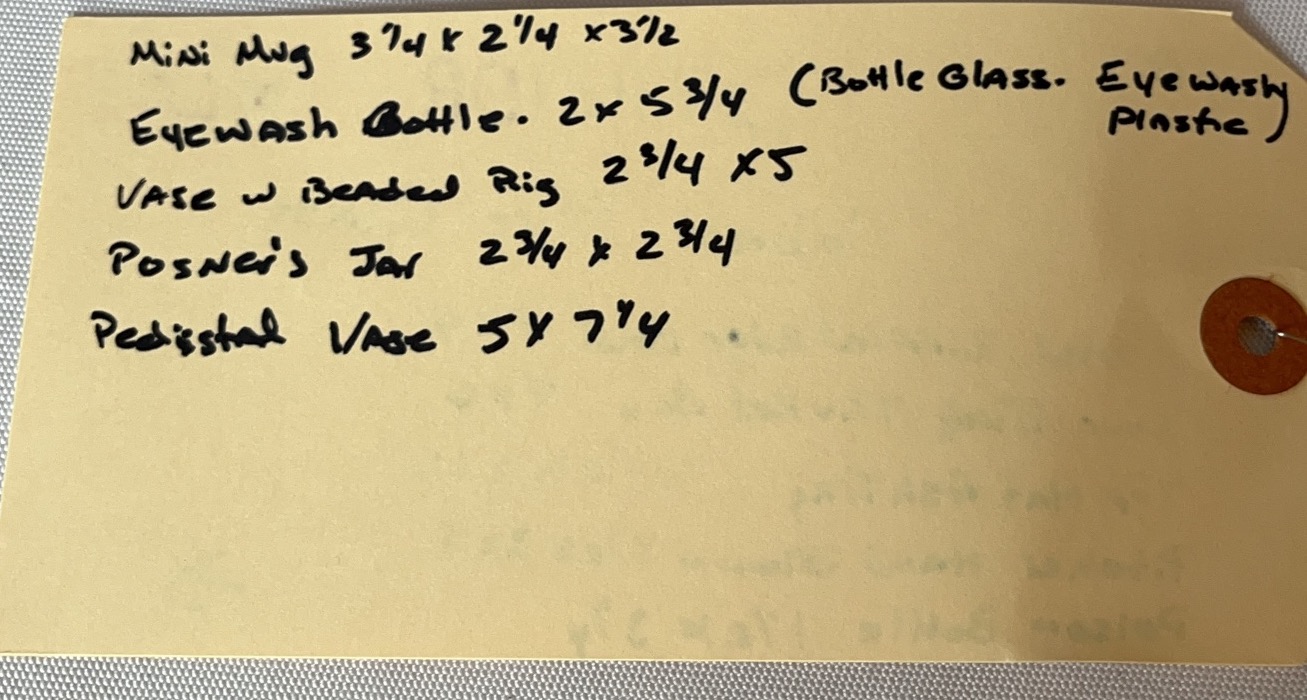 Mini Mug 3 1/4 x 2 1/4 x 3 1/2
Eyewash Bottle. 2 x 5 3/4 (Bottle Glass. Eyewash Plastic)
Vase w Beaded Rig 2 3/4 x 5
Posner's Jar 2 3/4 x 2 3/4
Pedisstal Vase 5 x 7 1/4